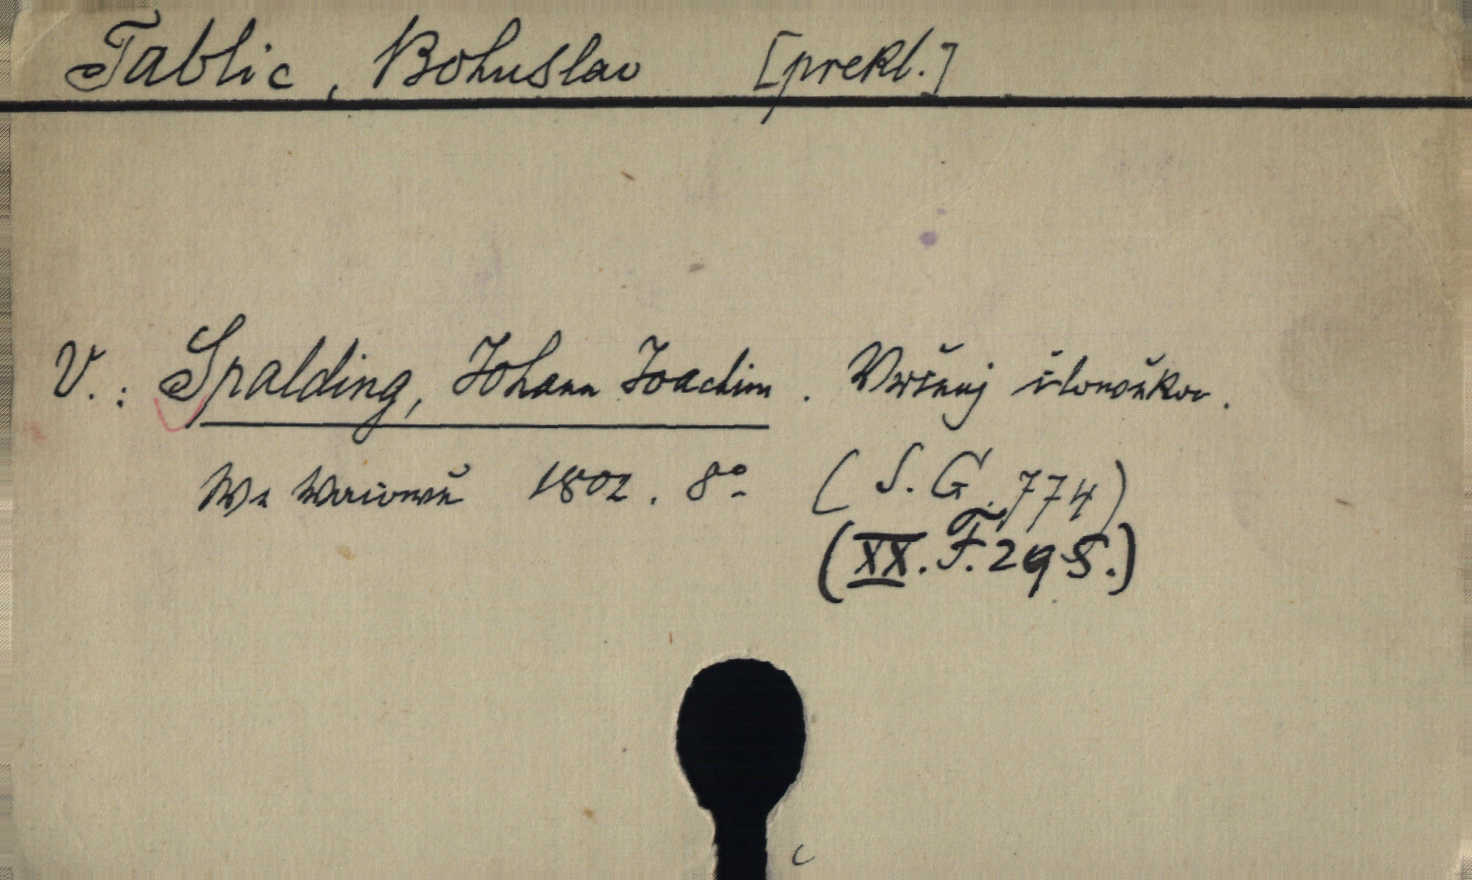 Tablic, Bohuslav [prekl.]
V.: Spalding, Johann Joachim. Určenj člowěka.
We Wacowě 1802. 8°
(S. G. 774)
(XX. F. 295.)